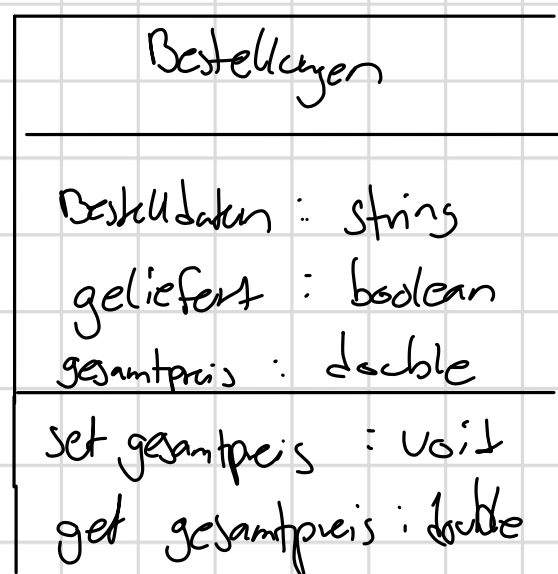 Bestellungen
Bestelldaten : string
geliefert : boolean
gesamtpreis : double
set gesamtpreis : void
get gesamtpreis : double